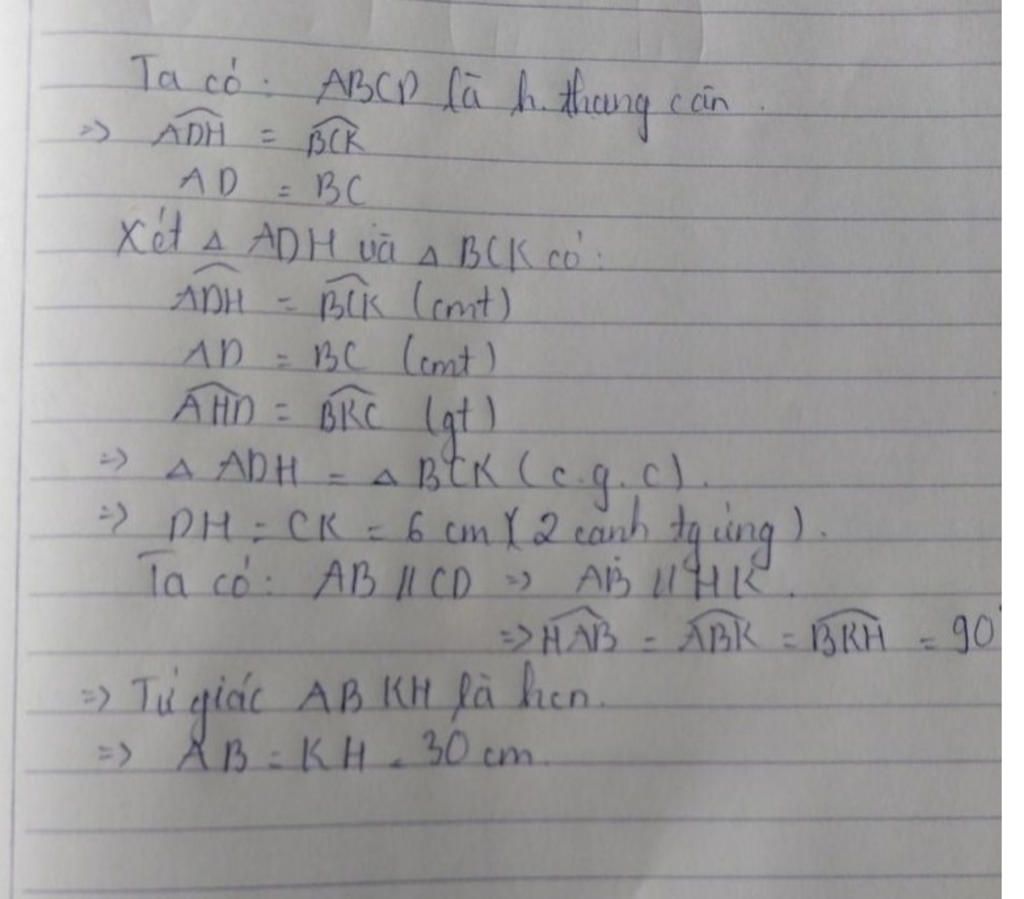 Ta có: ABCD là h. thang cân.
=> ADH = BCK
AD = BC
Xét Δ ADH và Δ BCK có:
ADH = BCK (cmt)
AD = BC (cmt)
AHD = BKC (gt)
=> Δ ADH = Δ BCK (c.g.c).
=> DH = CK = 6 cm (2 cạnh tg ứng).
Ta có: AB // CD => AB // HK.
=> HAB = ABK = BKH = 90°
=> Tứ giác ABKH là hcn.
=> AB = KH = 30 cm.